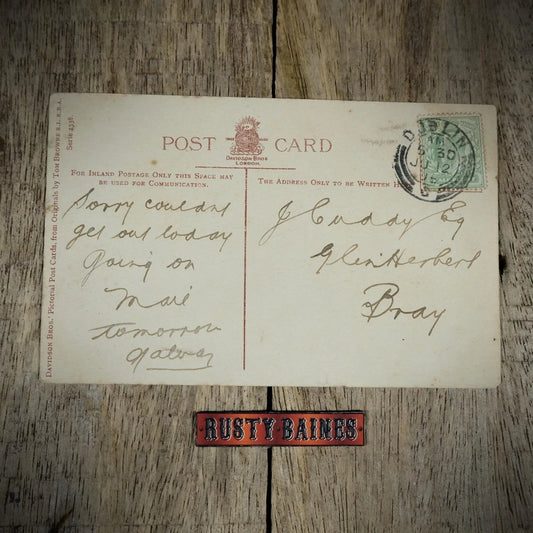 POST CARD
DAVIDSON BROS
LONDON.
FOR INLAND POSTAGE ONLY THIS SPACE MAY
BE USED FOR COMMUNICATION.
THE ADDRESS ONLY TO BE WRITTEN
DAVIDSON BROS.' PICTORIAL POST CARDS, FROM ORIGINALS BY TOM BROWNE R.I., R.B.A.
Serie
DUBLIN
5 30
Sorry couldnt
get out today
Going on
tomorrow
J Cuddy Eq
Glen Herbert
Bray
RUSTY·BAINES